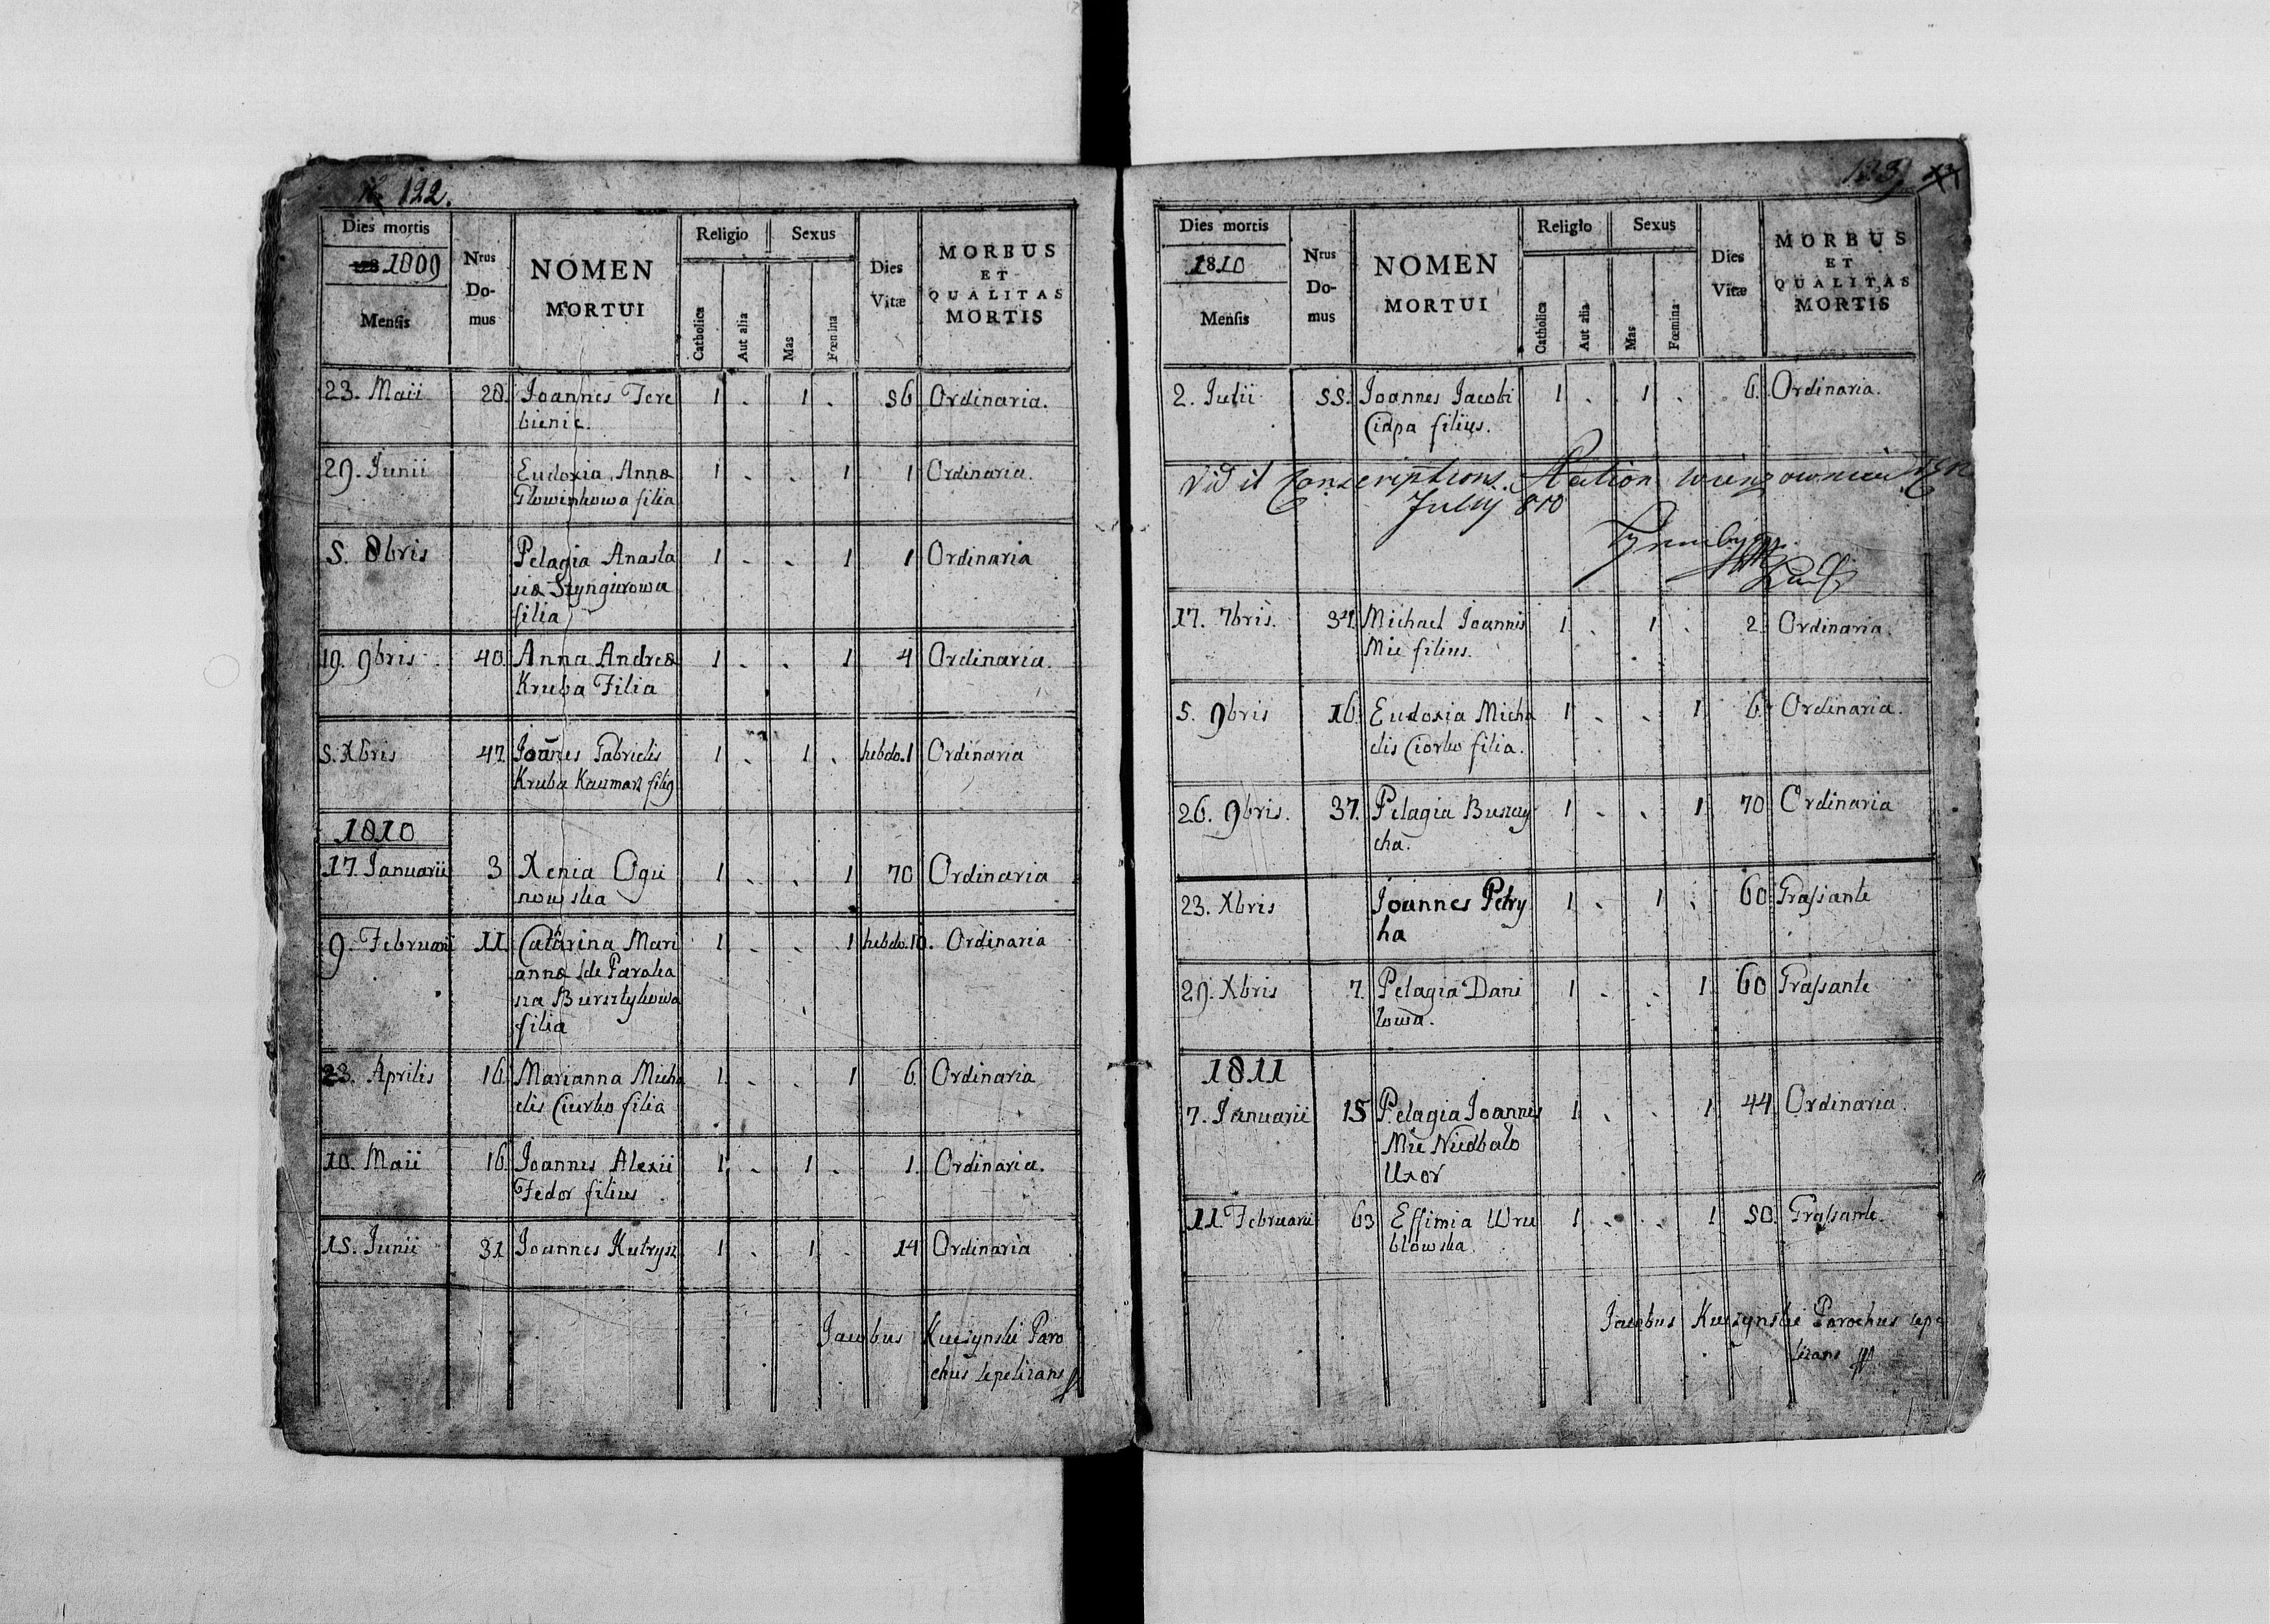 122.
Dies mortis
1809
Mensis
Nrus Do- mus
NOMEN MORTUI
Religio
Catholica
Aut alia
Sexus
Mas
Fœmina
Dies Vitæ
MORBUS ET QUALITAS MORTIS
23. Maii 28. Joannes Tere 1 - 1 - 56 Ordinaria.
bienic.
29. Junii Eudoxia Annæ 1 - - 1 1 Ordinaria.
Glowinkowa filia
5. 8bris Pelagia Anasta 1 - - 1 1 Ordinaria
siæ Szyngirowa
filia
19. 9bris 40. Anna Andreæ 1 - - 1 4 Ordinaria.
Kruba Filia
5. Xbris 47. Joañes Gabrielis 1 - 1 - hebdo. 1 Ordinaria
Kruba Kazmarz fili9
1810
17. Januarii 3 Xenia Ogu 1 - - 1 70 Ordinaria
nowska
9. Februarii 11. Catarina Mari 1 - - 1 hebdo. 10. Ordinaria
annæ de
filia
23. Aprilis 16. Marianna Micha 1 - - 1 6. Ordinaria
elis Ciurko filia
10. Maii 16. Joannes Alexii 1. - 1 - 1. Ordinaria.
Fedor filius
15. Junii 31. Joannes Kutrysz 1 - 1 - 14 Ordinaria
Jacobus Kuczynski Paro
chus sepelizans
Dies mortis
1810
Mensis
Nrus Do- mus
NOMEN MORTUI
Religio
Catholica
Aut alia
Sexus
Mas
Fœmina
Dies Vitæ
MORBUS ET QUALITAS MORTIS
2. Julii 55. Joannes Jacobi 1 - 1 - 6. Ordinaria.
Ciapa filius.
Vidit Conscriptions
July 810
17. 7bris. 34. Michael Joannis 1 - 1 - 2. Ordinaria.
Mie filius.
5. 9bris 16. Eudoxia Micha 1 - - 1 6. Ordinaria.
elis Ciorko filia.
26. 9bris. 37. Pelagia 1 - - 1 70 Ordinaria
cha.
23. Xbris Joannes Petry 1 - 1 - 60 Grassante
ha
29. Xbris 7. Pelagia Dani 1 - - 1 60 Grassante
lowa.
1811
7. Januarii 15 Pelagia Joannis 1 - - 1 44 Ordinaria.
Mie Niedbalo
Uxor
11. Februarii 63 Effimia Wru 1 - - 1 50. Grassante.
blowska.
Jacobus Kuczynski Parochus sepe
lizans